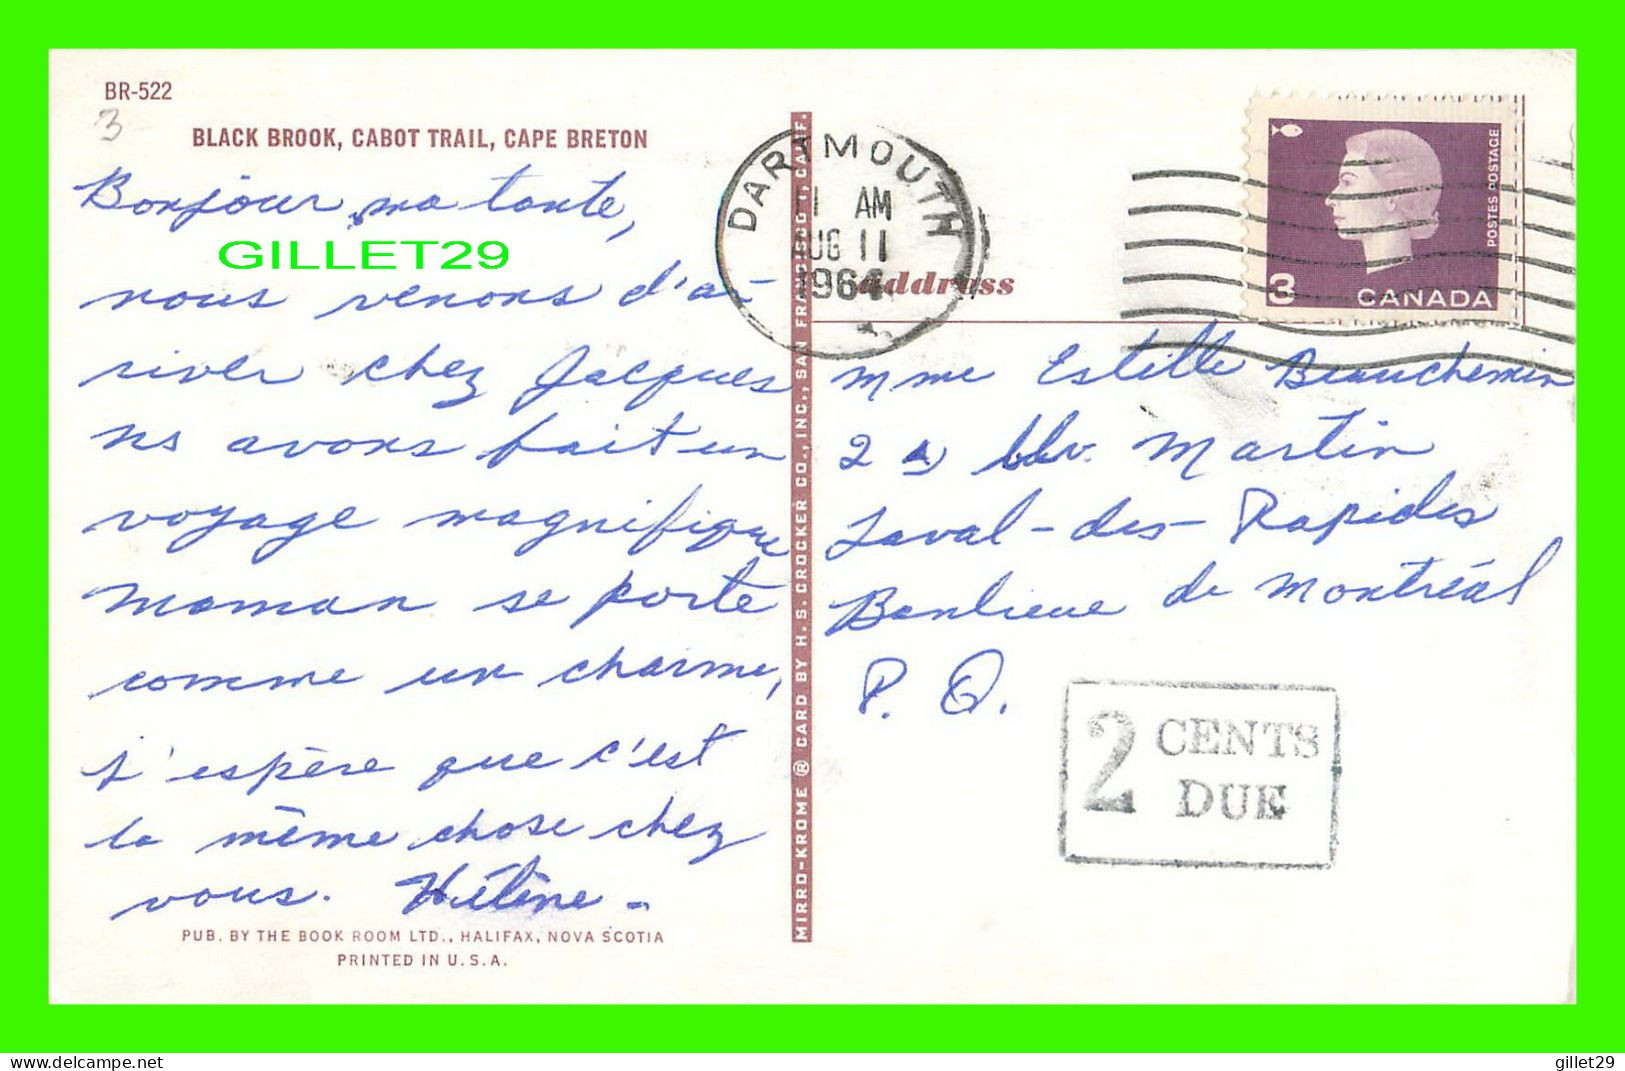 BR-522
3
BLACK BROOK, CABOT TRAIL, CAPE BRETON
Bonjour ma tante,
GILLET29
nous venons d'a-
river chez Jacques
ns avons fait un
voyage magnifique
maman se porte
comme un charme,
j'espère que c'est
la même chose chez
vous. Hélène -
PUB. BY THE BOOK ROOM LTD., HALIFAX, NOVA SCOTIA
PRINTED IN U.S.A.
MIRRO-KROME ® CARD BY H.S. CROCKER CO., INC., SAN FRANCISCO 1, CALIF.
DARTMOUTH
AM
AUG 11
1964
address
POSTES POSTAGE
3 CANADA
Mme Estelle Beauchemin
2 blv. Martin
Laval-des-Rapides
Banlieue de Montréal
P. Q.
2 CENTS
DUE
www.delcampe.net
gillet29